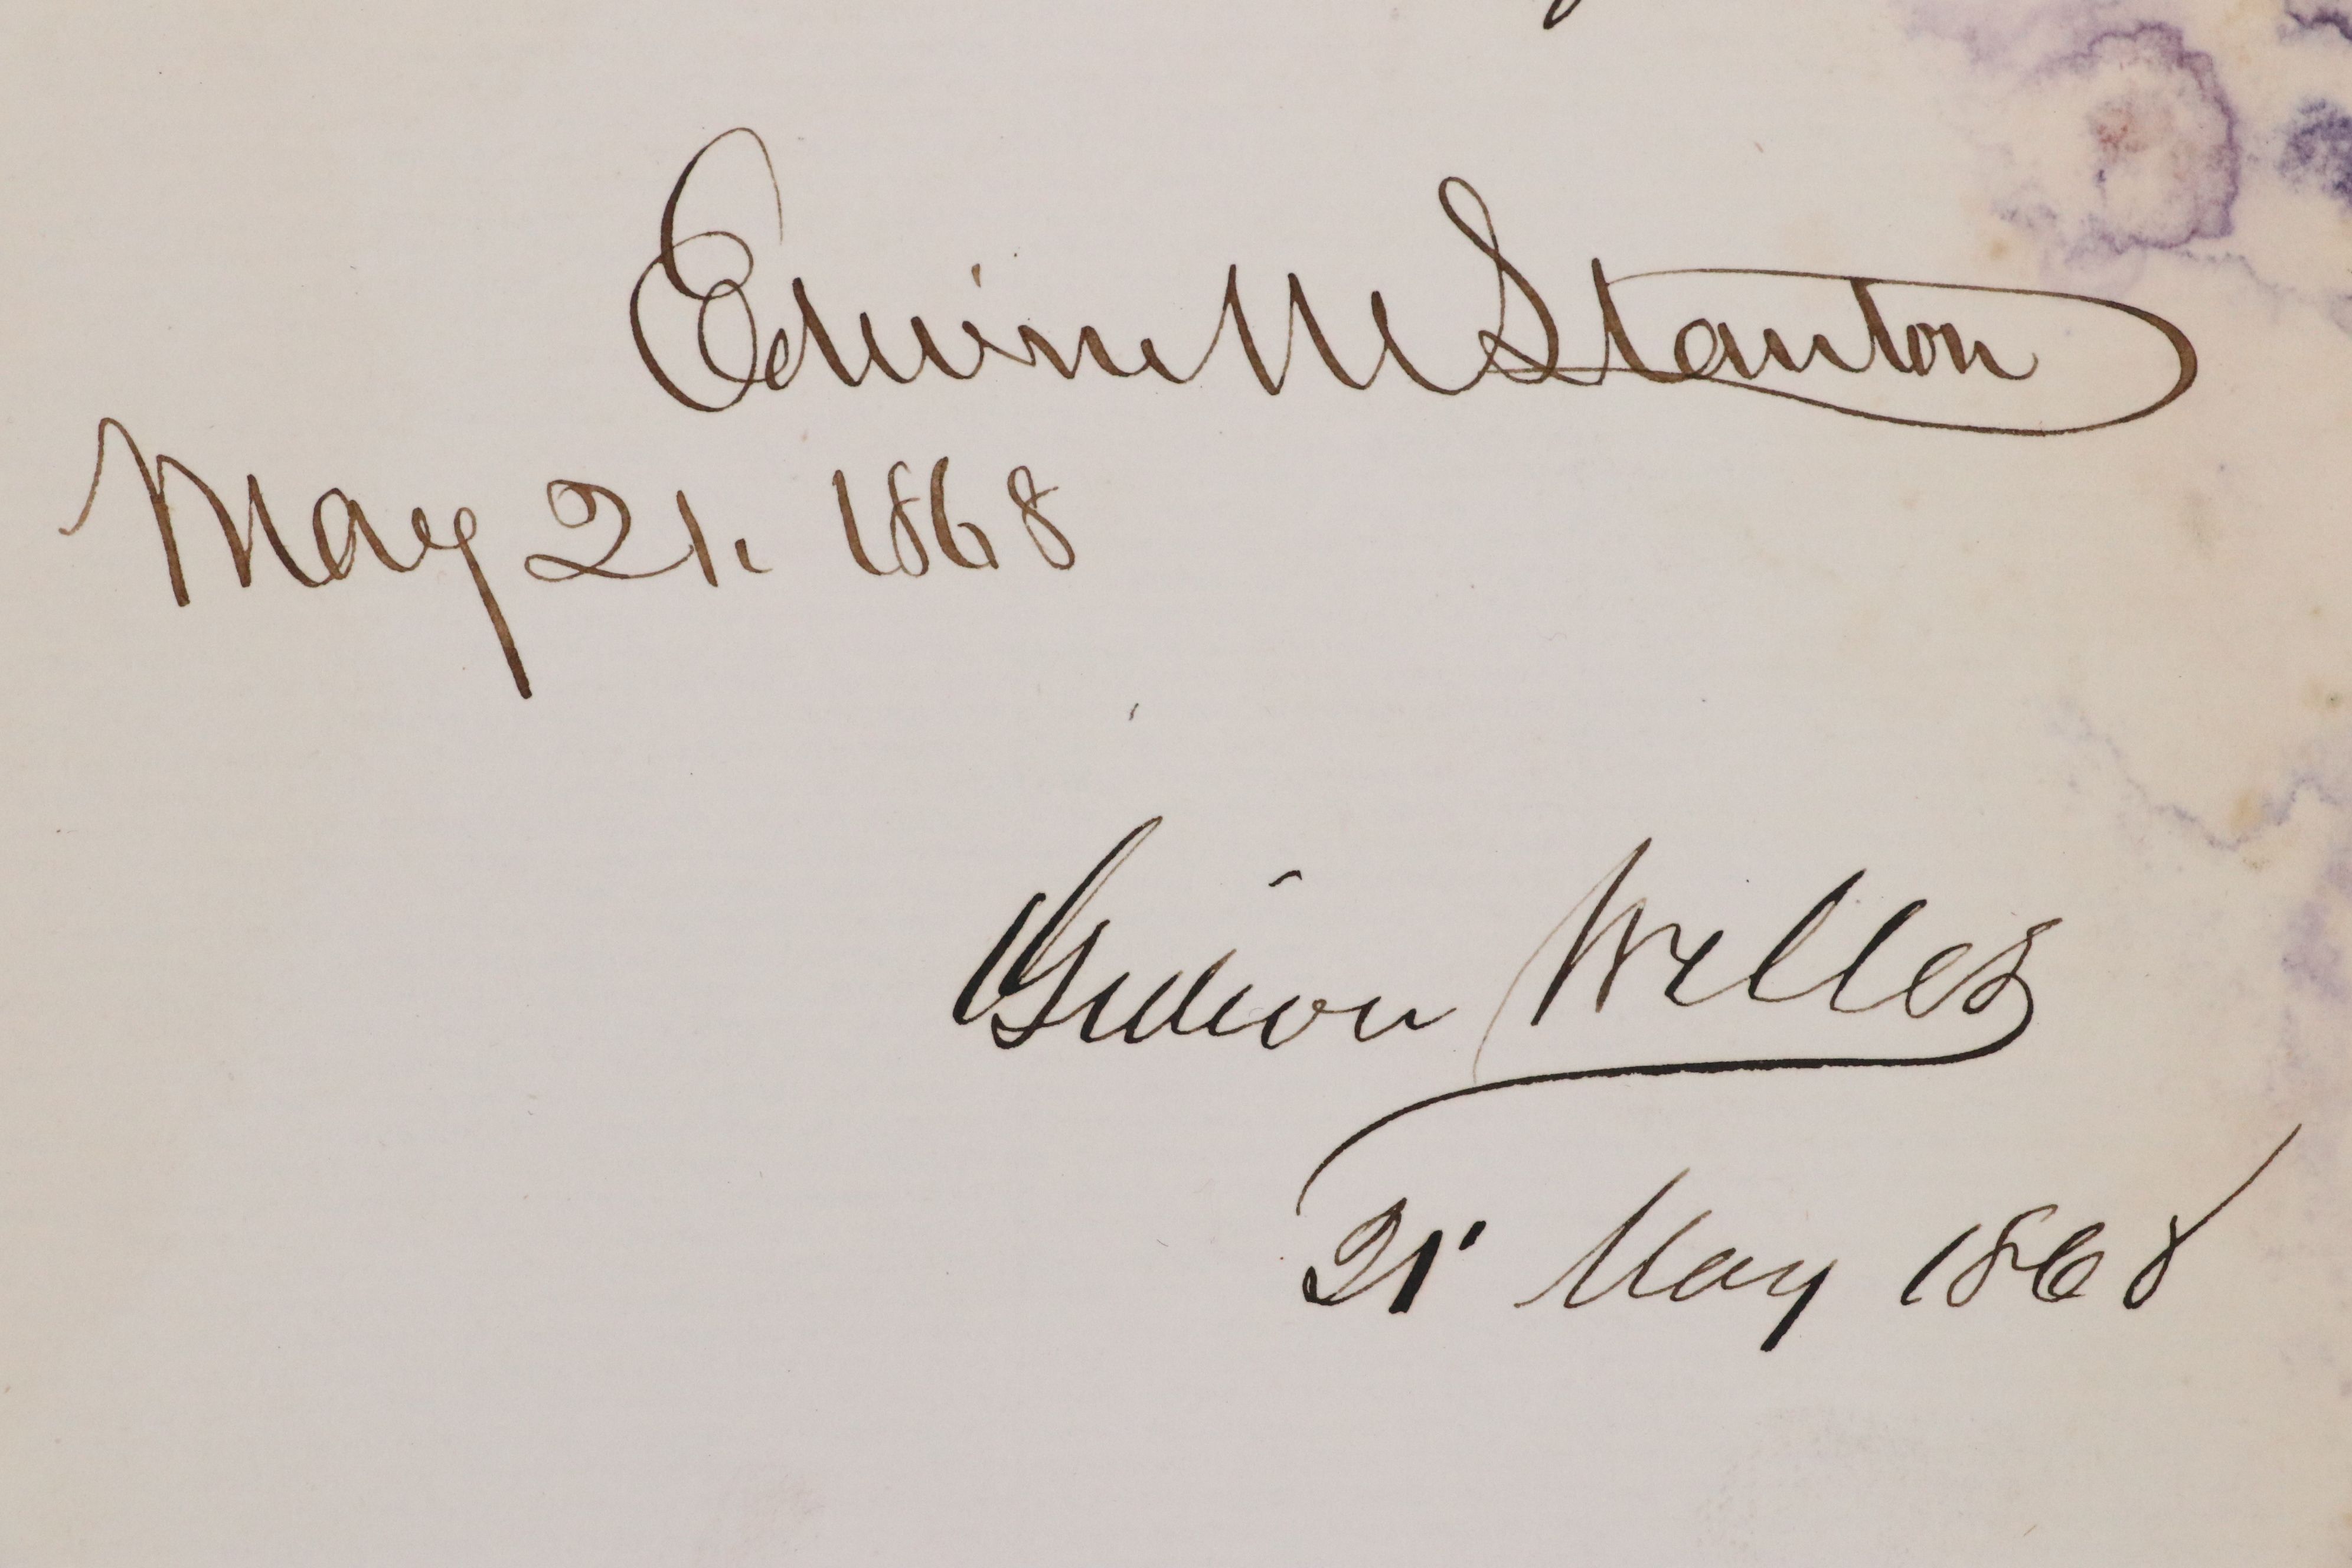 Edwin M Stanton
May 21. 1868
Gideon Welles
21 May 1868